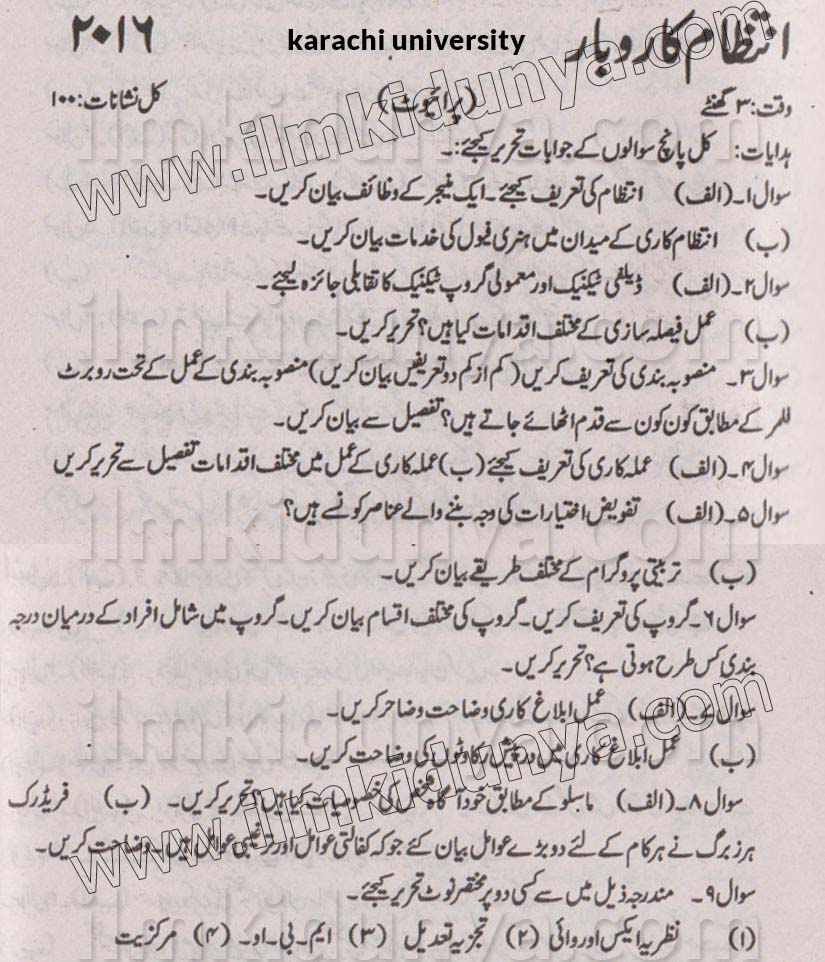 انتظام کاروبار karachi university ۲۰۱۶
وقت: ۳ گھنٹے (پرائیوٹ) کل نشانات: ۱۰۰
ہدایات: کل پانچ سوالوں کے جوابات تحریر کیجئے:۔
سوال ۱۔ (الف) انتظام کی تعریف کیجئے۔ ایک منیجر کے وظائف بیان کریں۔
(ب) انتظام کاری کے میدان میں ہنری فیول کی خدمات بیان کریں۔
سوال ۲۔ (الف) ڈیلفی ٹیکنیک اور معمولی گروپ ٹیکنیک کا تقابلی جائزہ لیجئے۔
(ب) عمل فیصلہ سازی کے مختلف اقدامات کیا ہیں؟ تحریر کریں۔
سوال ۳۔ منصوبہ بندی کی تعریف کریں (کم از کم دو تعریفیں بیان کریں) منصوبہ بندی کے عمل کے تحت روبرٹ
فلمر کے مطابق کون کون سے قدم اٹھائے جاتے ہیں؟ تفصیل سے بیان کریں۔
سوال ۴۔ (الف) عملہ کاری کی تعریف کیجئے (ب) عملہ کاری کے عمل میں مختلف اقدامات تفصیل سے تحریر کریں
سوال ۵۔ (الف) تفویض اختیارات کی وجہ بننے والے عناصر کونسے ہیں؟
(ب) تربیتی پروگرام کے مختلف طریقے بیان کریں۔
سوال ۶۔ گروپ کی تعریف کریں۔ گروپ کی مختلف اقسام بیان کریں۔ گروپ میں شامل افراد کے درمیان درجہ
بندی کس طرح ہوتی ہے؟ تحریر کریں۔
سوال ۷۔ (الف) عمل ابلاغ کاری وضاحت وضاحر کریں۔
(ب) عمل ابلاغ کاری میں درپیش رکاوٹوں کی وضاحت کریں۔
سوال ۸۔ (الف) ماسلو کے مطابق خود آگاہ شخص کی خصوصیات کیا ہیں؟ تحریر کریں۔ (ب) فریڈرک
ہرزبرگ نے ہر کام کے لئے دو بڑے عوامل بیان کئے جو کہ کفالتی عوامل اور ترغیبی عوامل ہیں۔ وضاحت کریں۔
سوال ۹۔ مندرجہ ذیل میں سے کسی دو پر مختصر نوٹ تحریر کیجئے۔
(۱) نظریہ ایکس اور وائی (۲) تجزیہ تعدیل (۳) ایم۔ بی۔ او۔ (۴) مرکزیت
www.ilmkidunya.com
www.ilmkidunya.com
ilmkidunya.com
ilmkidunya.com
ilmkidunya.com
ilmkidunya.com
ilmkidunya.com